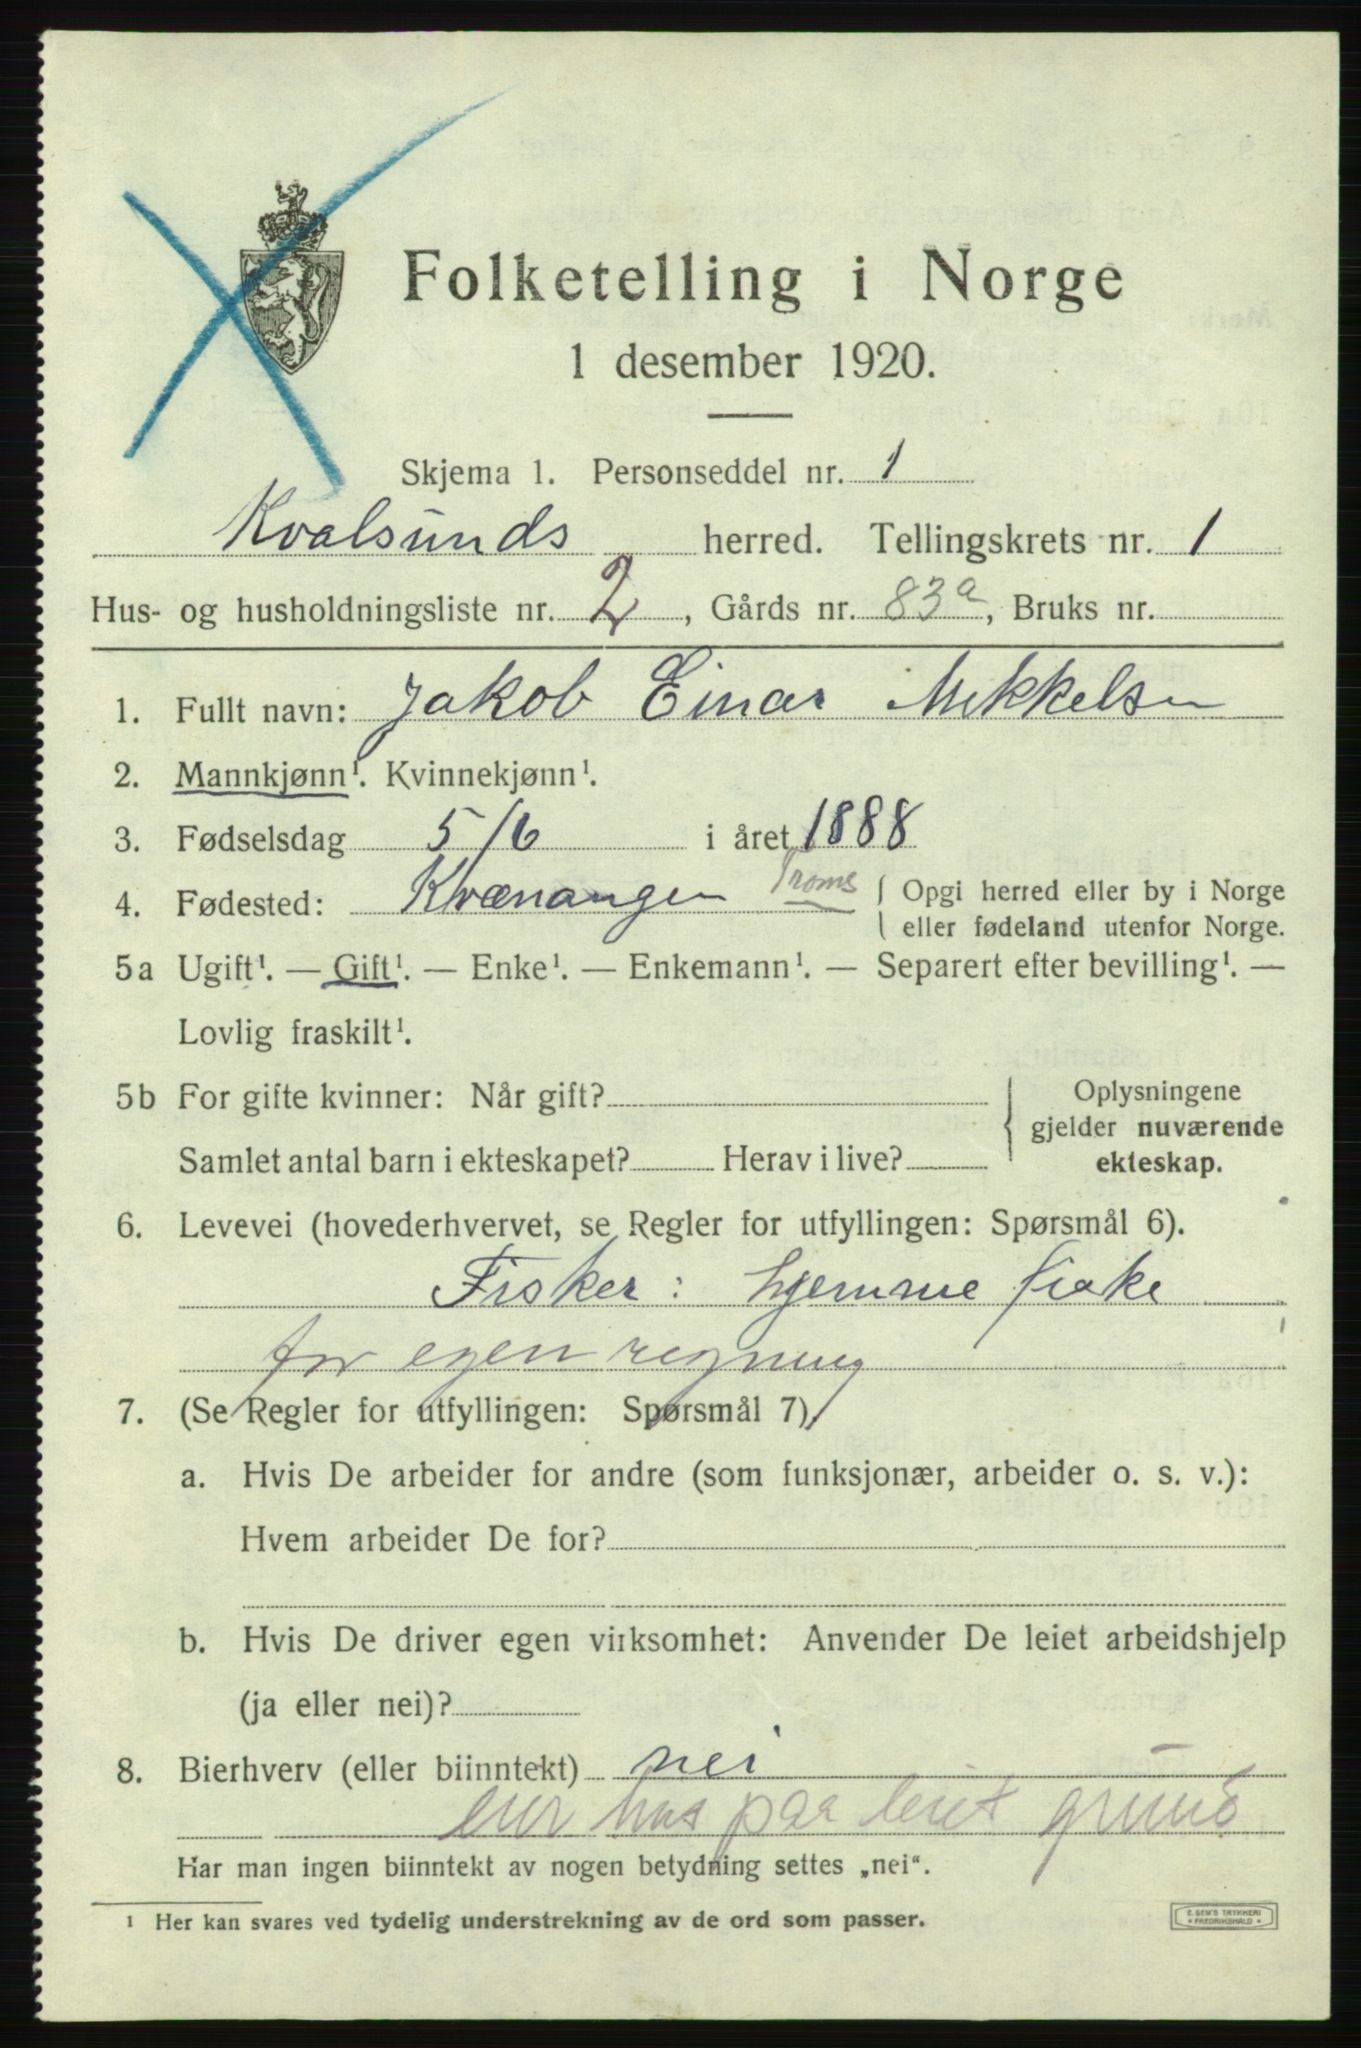 Folketelling i Norge
1 desember 1920.
Skjema 1. Personseddel nr. 1
Kvalsunds herred. Tellingskrets nr. 1
Hus- og husholdningsliste nr. 2, Gårds nr. 83a, Bruks nr.
1. Fullt navn: Jakob Einar Mikkelsen
2. Mannkjønn¹. Kvinnekjønn¹.
3. Fødselsdag 5/6 i året 1888
4. Fødested: Kvænangen Troms { Opgi herred eller by i Norge
eller fødeland utenfor Norge.
5a Ugift¹. — Gift¹. — Enke¹. — Enkemann¹. — Separert efter bevilling¹. —
Lovlig fraskilt¹.
5b For gifte kvinner: Når gift?
Samlet antal barn i ekteskapet? Herav i live?
Oplysningene
gjelder nuværende
ekteskap.
6. Levevei (hovederhvervet, se Regler for utfyllingen: Spørsmål 6).
Fisker: hjemmefiske
for egen regning
7. (Se Regler for utfyllingen: Spørsmål 7)
a. Hvis De arbeider for andre (som funksjonær, arbeider o. s. v.):
Hvem arbeider De for?
b. Hvis De driver egen virksomhet: Anvender De leiet arbeidshjelp
(ja eller nei)?
8. Bierhverv (eller biinntekt) nei
eier hus paa leiet grund
Har man ingen biinntekt av nogen betydning settes „nei“.
¹ Her kan svares ved tydelig understrekning av de ord som passer.
E. SEM'S TRYKKERI
FREDRIKSHALD